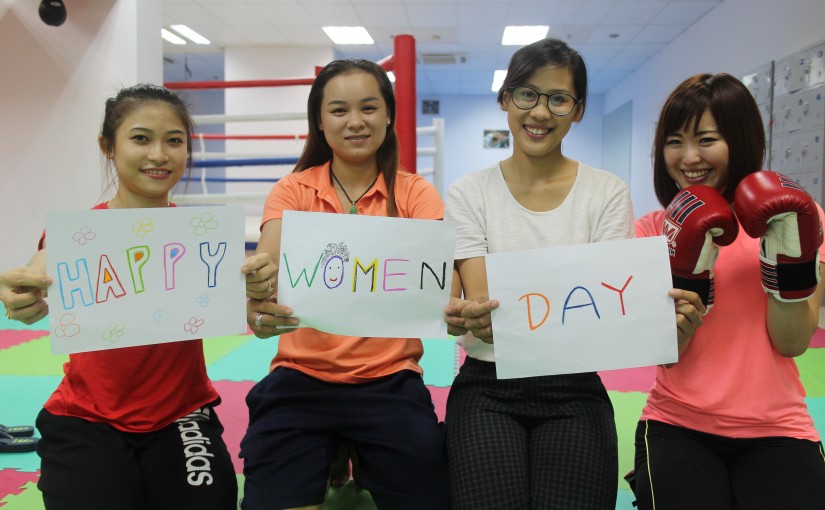 HAPPY
WOMEN
DAY
adidas